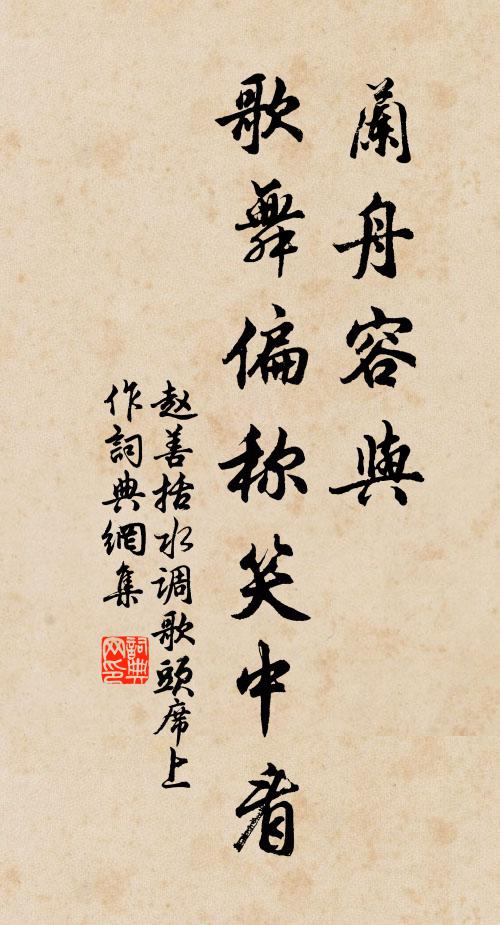 蘭舟容與
歌舞偏称笑中看
赵善括水调歌頭席上
作詞典網集
詞典网印